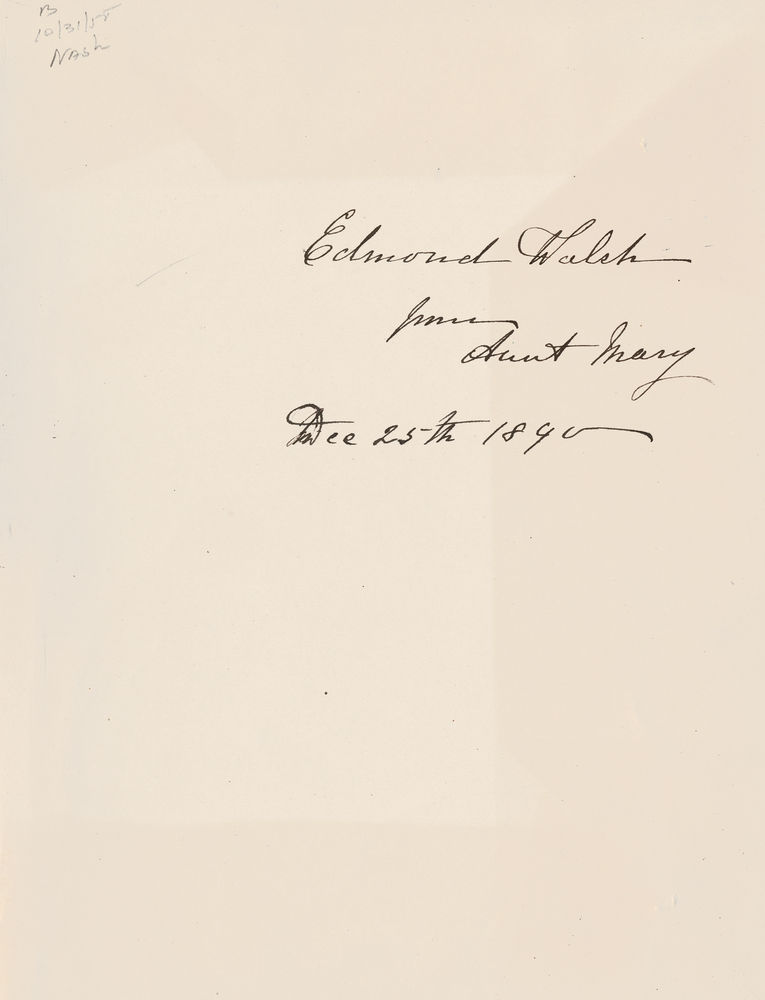 B
10/31/58
Nash
Edmond Walsh
from
Aunt Mary
Dec 25th 1890